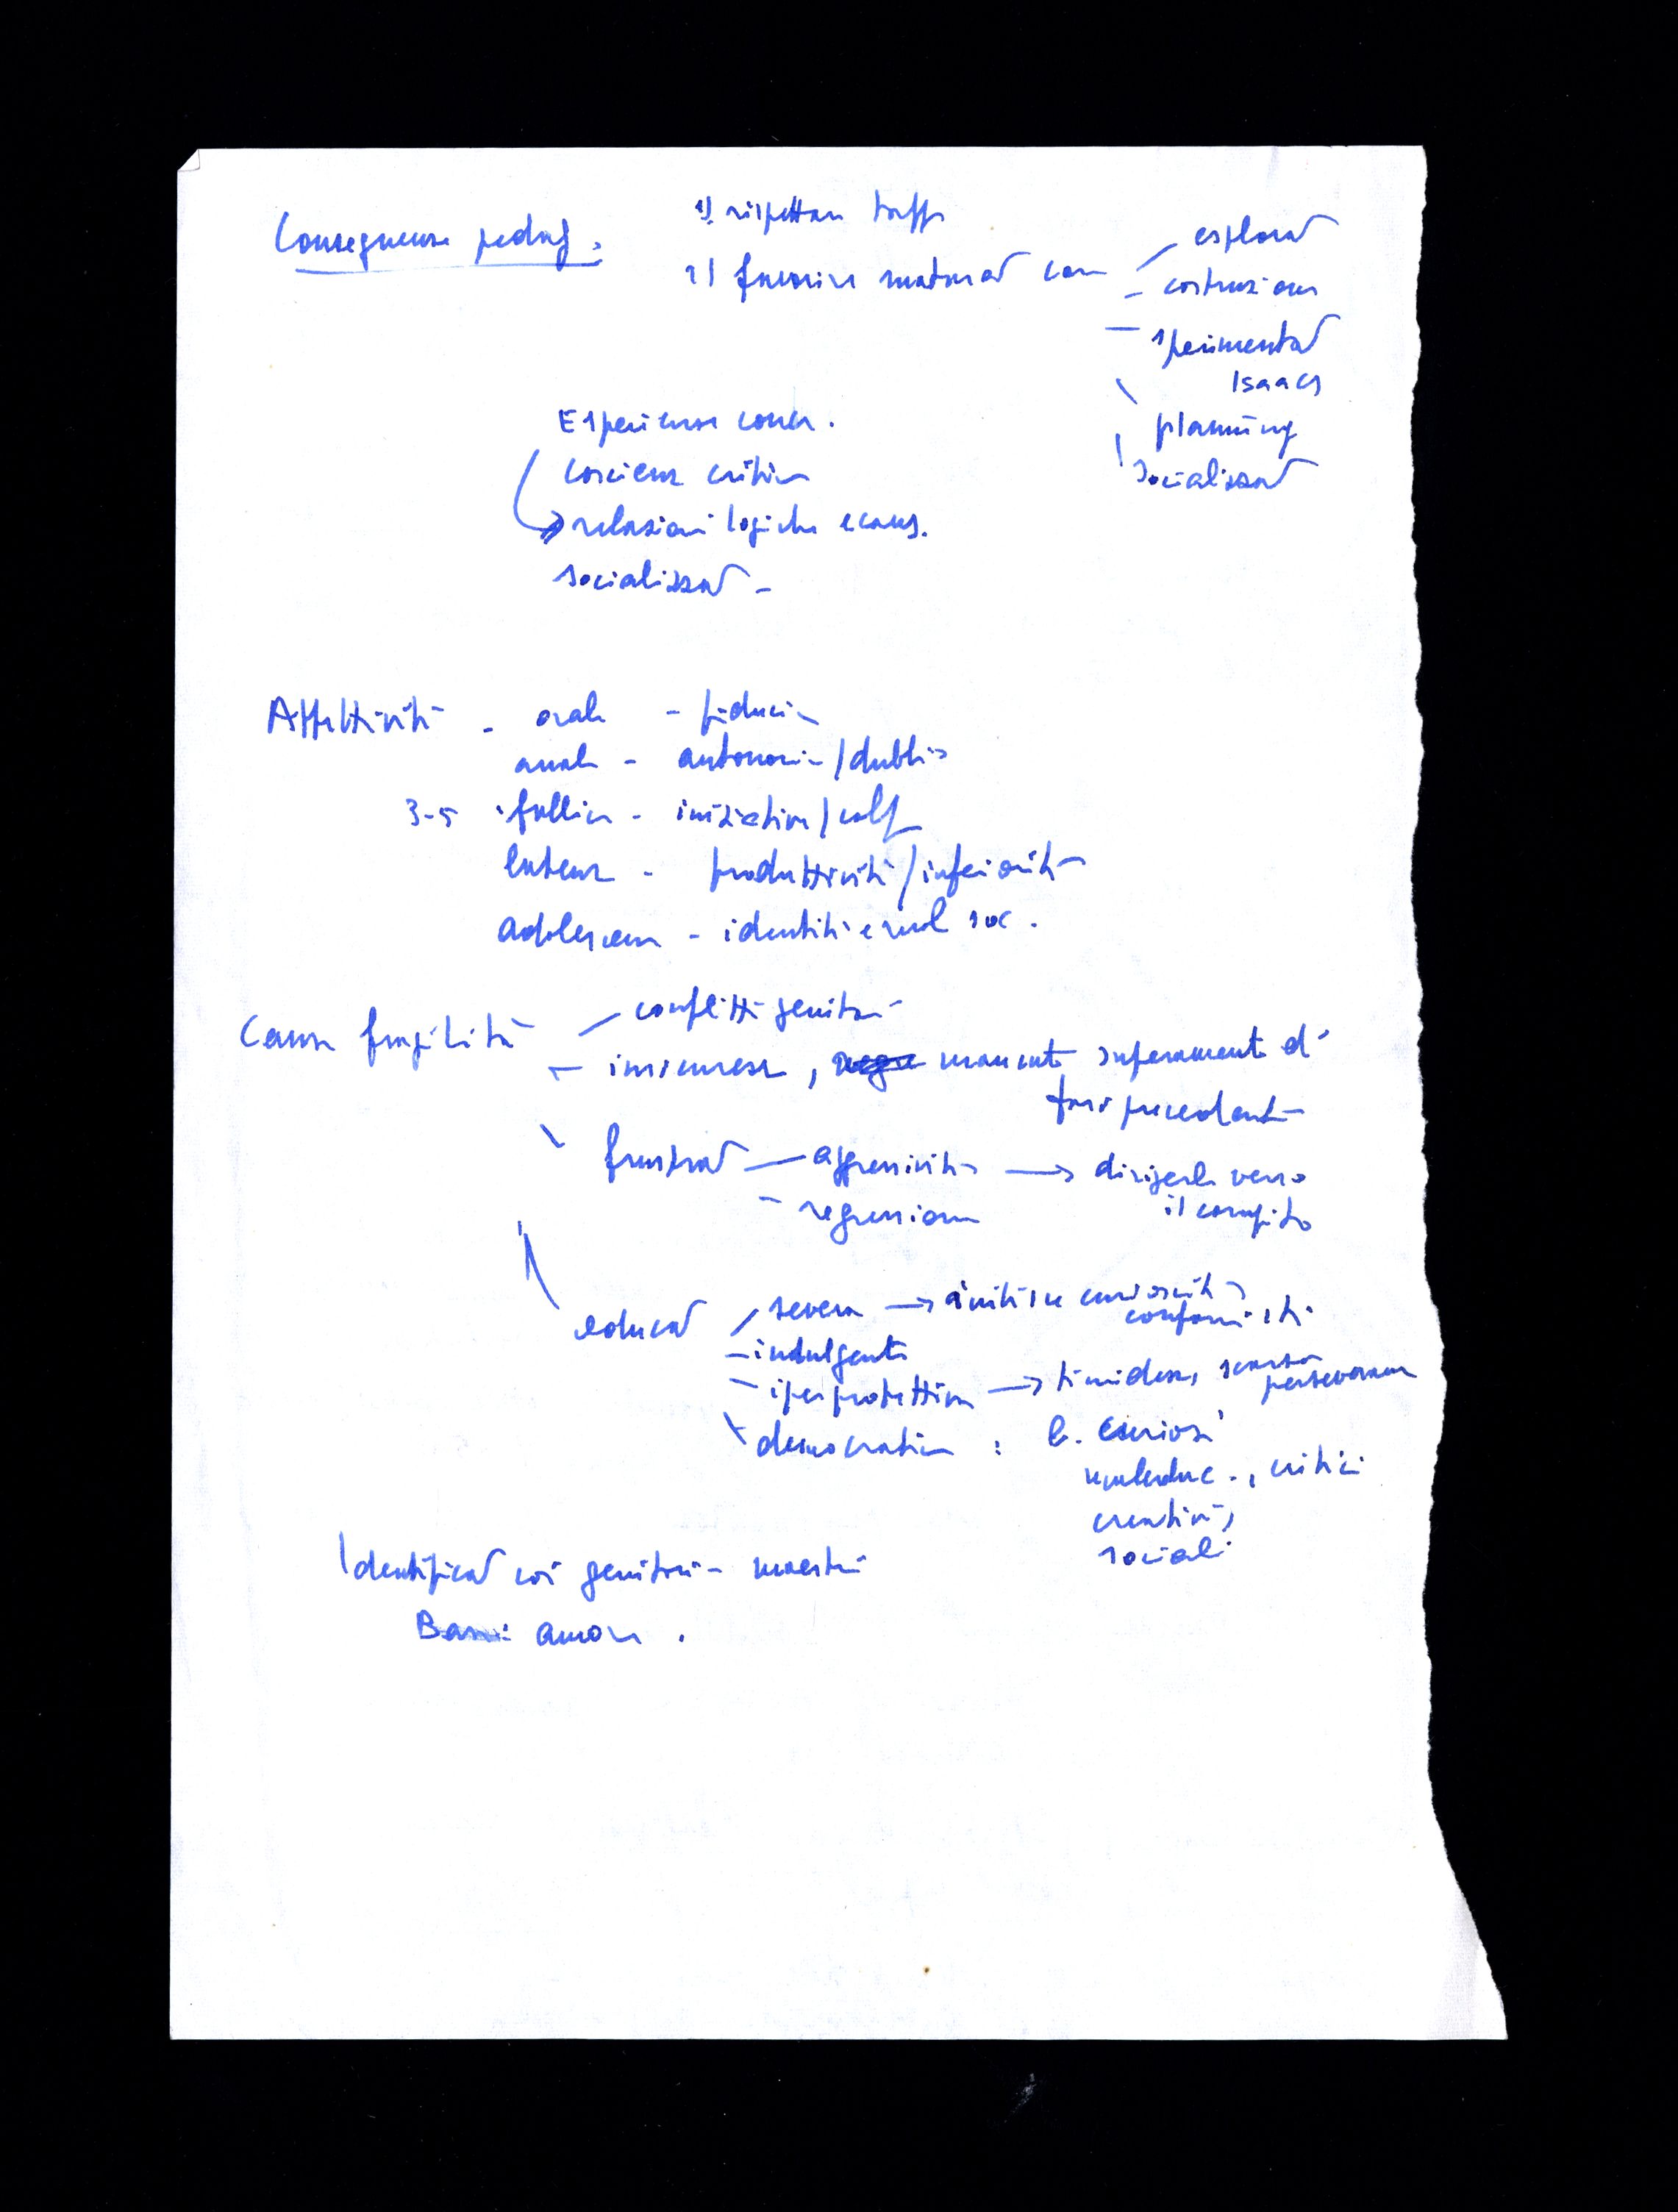 Conseguenze pedag.
1) rispettare
2) favorire maturaz con
esploraz
costruzione
sperimentaz
Isaacs
planning
socializzaz
Esperienze concr.
Coscienza critica
relazioni logiche e caus.
socializzaz -
Affettività - orale - fiducia
anale - autonomia/dubbio
3-5 fallica - iniziativa/colp
latenza - produttività/inferiorità
adolescenza - identità e ruol soc.
Cause fragilità
conflitti genitori
insicurezza, mancato superamento di
fasi precedenti
frustraz - aggressività → dirigerla verso
il compito
- regressione
educaz
severa → inibisce curiosità,
conformisti
- indulgente
- iperprotettiva → timidezza, scarsa
perseveranza
democratica : b. curiosi
, critici
creativi,
sociali
Identificaz coi genitori - maestri
Basi: amore.